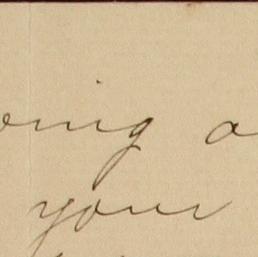 oing a
your